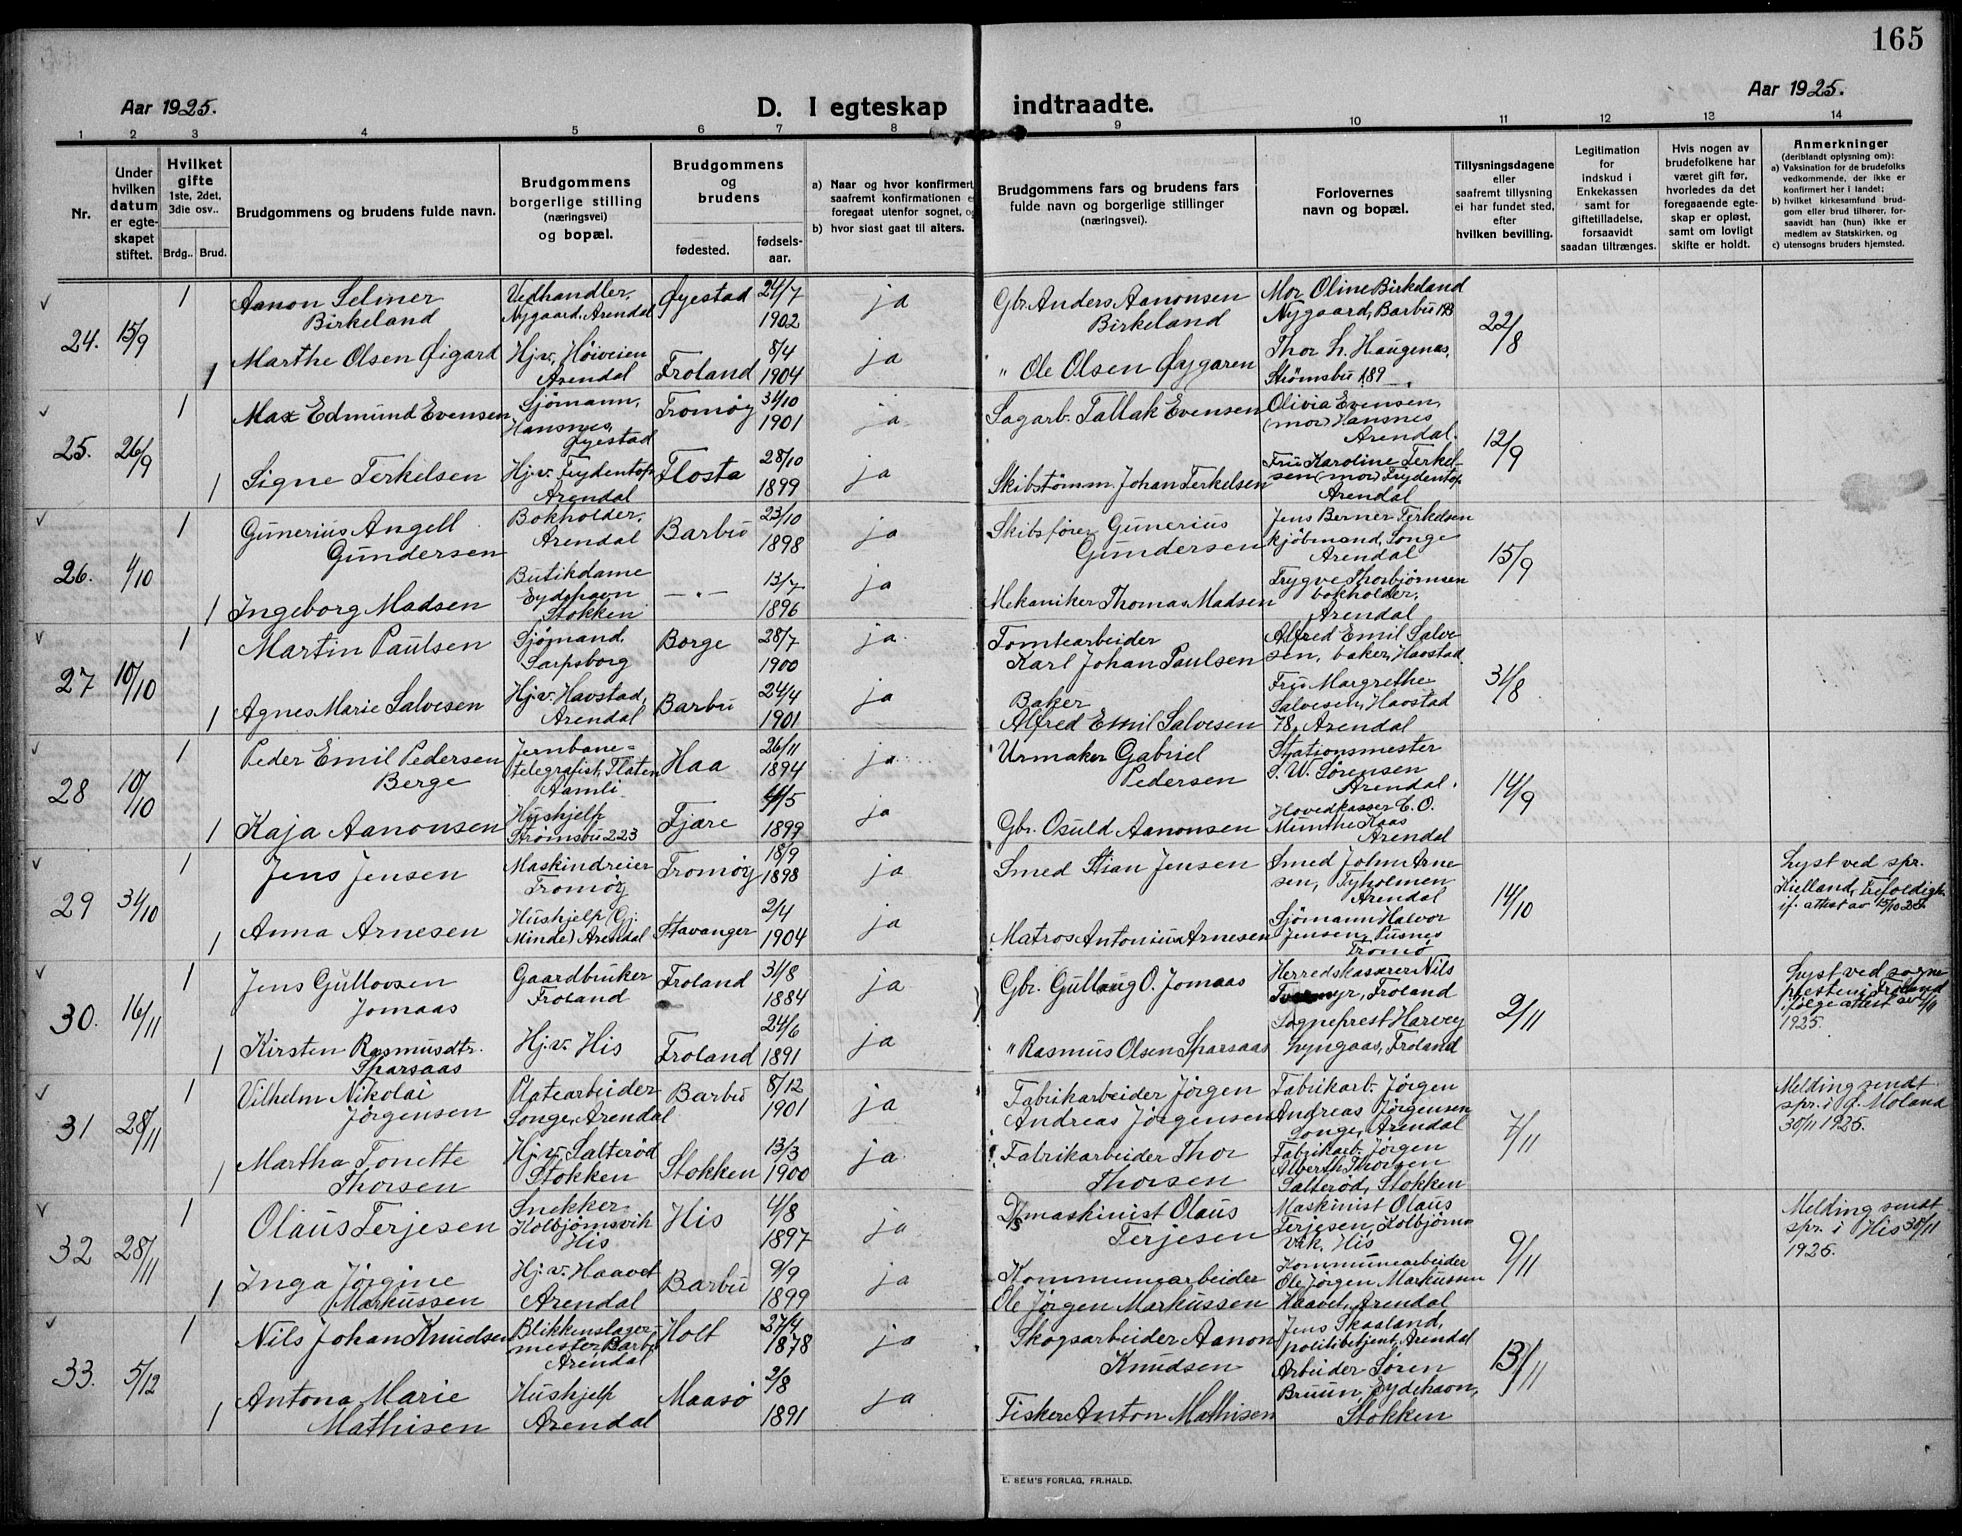 165
Aar 1925.
D. I egteskap indtraadte.
Aar 1925.
1 2 3 4 5 6 7 8 9 10 11 12 13 14
Nr.
Under hvilken datum er egteskapet stiftet.
Hvilket gifte 1ste, 2det, 3die osv..
Brdg.. Brud.
Brudgommens og brudens fulde navn.
Brudgommens borgerlige stilling (næringsvei) og bopæl.
Brudgommens og brudens
fødested. fødselsaar.
a) Naar og hvor konfirmert, saafremt konfirmationen e foregaat utenfor sognet, og
b) hvor sidst gaat til alters.
Brudgommens fars og brudens fars fulde navn og borgerlige stillinger (næringsvei).
Forlovernes navn og bopæl.
Tillysningsdagene eller saafremt tillysning ei har fundet sted, efter hvilken bevilling.
Legitimation for indskud i Enkekassen samt for giftetilladelse, forsaavidt saadan tiltrænges.
Hvis nogen av brudefolkene har været gift før, hvorledes da det foregaaende egteskap er opløst, samt om lovligt skifte er holdt.
Anmerkninger
(deriblandt oplysning om):
a) Vaksination for de brudefolks vedkommende, der ikke er konfirmert her i landet;
b) hvilket kirkesamfund brudgom eller brud tilhører, forsaavidt han (hun) ikke er medlem av Statskirken, og
c) utensogns bruders hjemsted.
24. 15/9
1 Aanon Selmer Birkeland
Vedhandler, Nygaard, Arendal
Øyestad 24/7 1902 ja
Gbr. Anders Aanonsen Birkeland
Mor Oline Birkeland Nygaard, Barbu
22/8
1 Marthe Olsen Øigard
Hj.v. Høiveien Arendal
Froland 8/4 1904 ja
" Ole Olsen Øygaren
Thor L. Haugenæs, Strømsbu 189
25. 26/9
1 Max Edmund Evensen
Sjømann, Hansnes, Øyestad
Tromøy 31/10 1901 ja
Sagarb. Tallak Evensen
Olivia Evensen, (mor) Hansnes Arendal.
12/9
1 Signe Terkelsen
Hj.v. Frydentop Arendal
Flosta 28/10 1899 ja
Skibstømm. Johan Terkelsen
Fru Karoline Terkelsen (mor) Frydentop Arendal
26. 4/10
1 Gunerius Angell Gundersen
Bokholder, Arendal
Barbu 23/10 1898 ja
Skibsfører Gunerius Gundersen
Jens Berner Terkelsen kjøbmand, Songe Arendal
15/9
1 Ingeborg Madsen
Butikdame Eydehavn Stokken
— " — 13/7 1896 ja
Mekaniker Thomas Madsen
Trygve Thorbjørnsen bokholder, Arendal
27 10/10
1 Martin Paulsen
Sjømand, Sarpsborg
Borge 28/7 1900 ja
Tomtearbeider Karl Johan Paulsen
Alfred Emil Salvesen, baker, Havstad
31/8
1 Agnes Marie Salvesen
Hj.v. Havstad, Arendal
Barbu 24/4 1901 ja
Baker Alfred Emil Salvesen
Fru Margrethe Salvesen, Havstad 78, Arendal
28 10/10
1 Peder Emil Pedersen Berge
Jernbane= telegrafist, Flaten Aamli
Haa 26/11 1894 ja
Urmaker Gabriel Pedersen
Stationsmester S. W. Sørensen Arendal.
14/9
1 Kaja Aanonsen
Hushjelp Strømsbu 223
Fjære 4/5 1899 ja
Gbr. Osuld Aanonsen
Hovedkasser C. O. Munthe Kaas Arendal
29 31/10
1 Jens Jensen
Maskindreier Tromøy
Tromøy 18/9 1898 ja
Smed Stian Jensen
Smed John Arnesen, Tyholmen Arendal
14/10
Lyst ved spr. Kielland, Trefoldigh. if. attest av 15/10 25.
1 Anna Arnesen
Hushjelp (Gj. Minde) Arendal
Stavanger 2/4 1904 ja
Matros Antonius Arnesen
Sjømann Halvor Jensen, Pusnes Tromø
30. 16/11
1 Jens Gullovsen Jomaas
Gaardbruker Froland
Froland 31/8 1884 ja
Gbr. Gullaug O. Jomaas
Herredskasserer Nils Froland
9/11
Lyst ved sognepresten i Froland ifølge attest av 1925.
1 Kirsten Rasmusdtr. Sparsaas
Hj.v. His
Froland 24/6 1891 ja
" Rasmus Olsen Sparsaas
Sogneprest Harvey Lyngaas, Froland
31 28/11
1 Vilhelm Nikolai Jørgensen
Platearbeider Songe, Arendal
Barbu 8/12 1901 ja
Fabrikarbeider Jørgen Andreas Jørgensen
Fabrikarb. Jørgen Andreas Jørgensen Songe, Arendal
7/11
Melding sendt spr. i Ø. Moland 30/11 1925.
1 Martha Tonette Thorsen
Hj.v. Salterød Stokken
Stokken 13/3 1900 ja
Fabrikarbeider Thor Thorsen
Fabrikarb. Jørgen Alberth Thorsen Salterød, Stokken
32 28/11
1 Olaus Terjesen
Snekker Kolbjørnsvik His
His 4/8 1897 ja
D/s maskinist Olaus Terjesen
Maskinist Olaus Terjesen, Kolbjørnsvik, His
9/11
Melding sendt spr. i His 30/11 1925.
1 Inga Jørgine Markussen
Hj.v. Haavet Arendal
Barbu 9/9 1899 ja
Kommunearbeider Ole Jørgen Markussen
Kommunearbeider Ole Jørgen Markussen Haavet, Arendal
33. 5/12
1 Nils Johan Knudsen
Blikkenslagermester, Barbu Arendal
Holt 27/4 1878 ja
Skogsarbeider Aanon Knudsen
Jens Skaaland, politibetjent, Arendal
13/11
1 Antona Marie Mathisen
Hushjelp Arendal
Maasø 2/8 1891 ja
Fisker Anton Mathisen
Arbeider Søren Bruun, Eydehavn, Stokken
E. SEM'S FORLAG, FR.HALD.